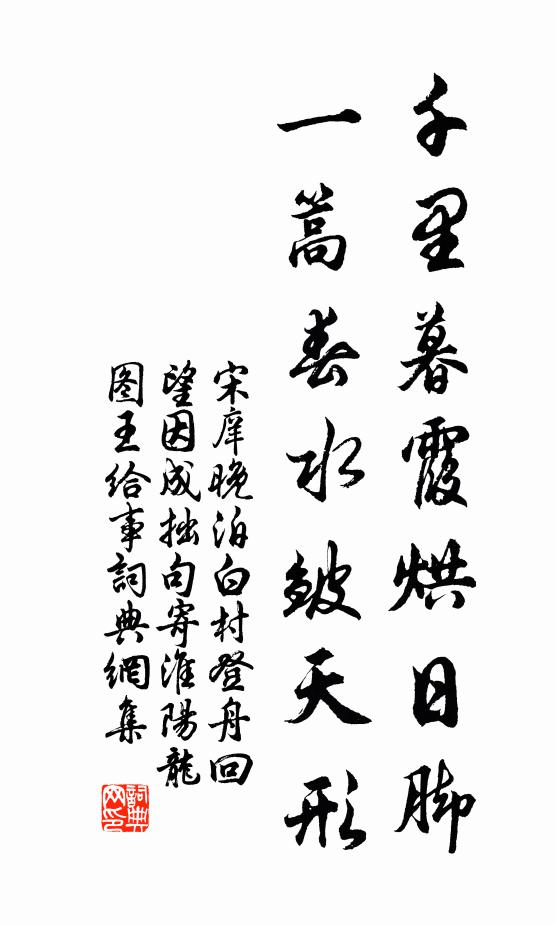 千里暮霞烘日脚
一篙春水皱天形
宋庠晚泊白村登舟回
望因成拙句寄淮陽龍
图王给事詞典網集
詞典网印